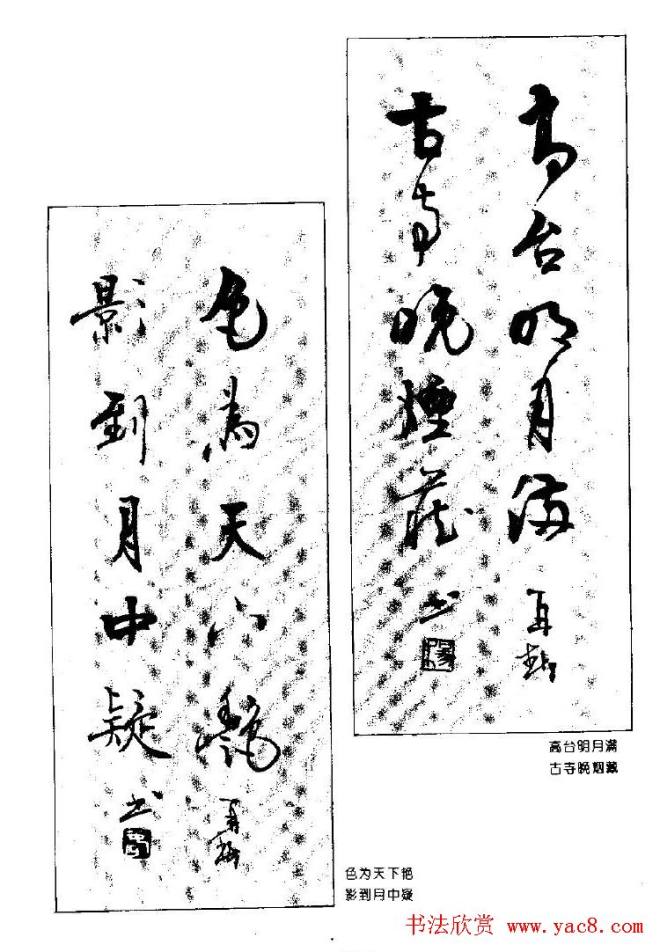 高台明月满
古寺晚烟藏
书
色为天下艳
影到月中疑
书
高台明月满
古寺晚烟藏
色为天下艳
影到月中疑
书法欣赏 www.yac8.com